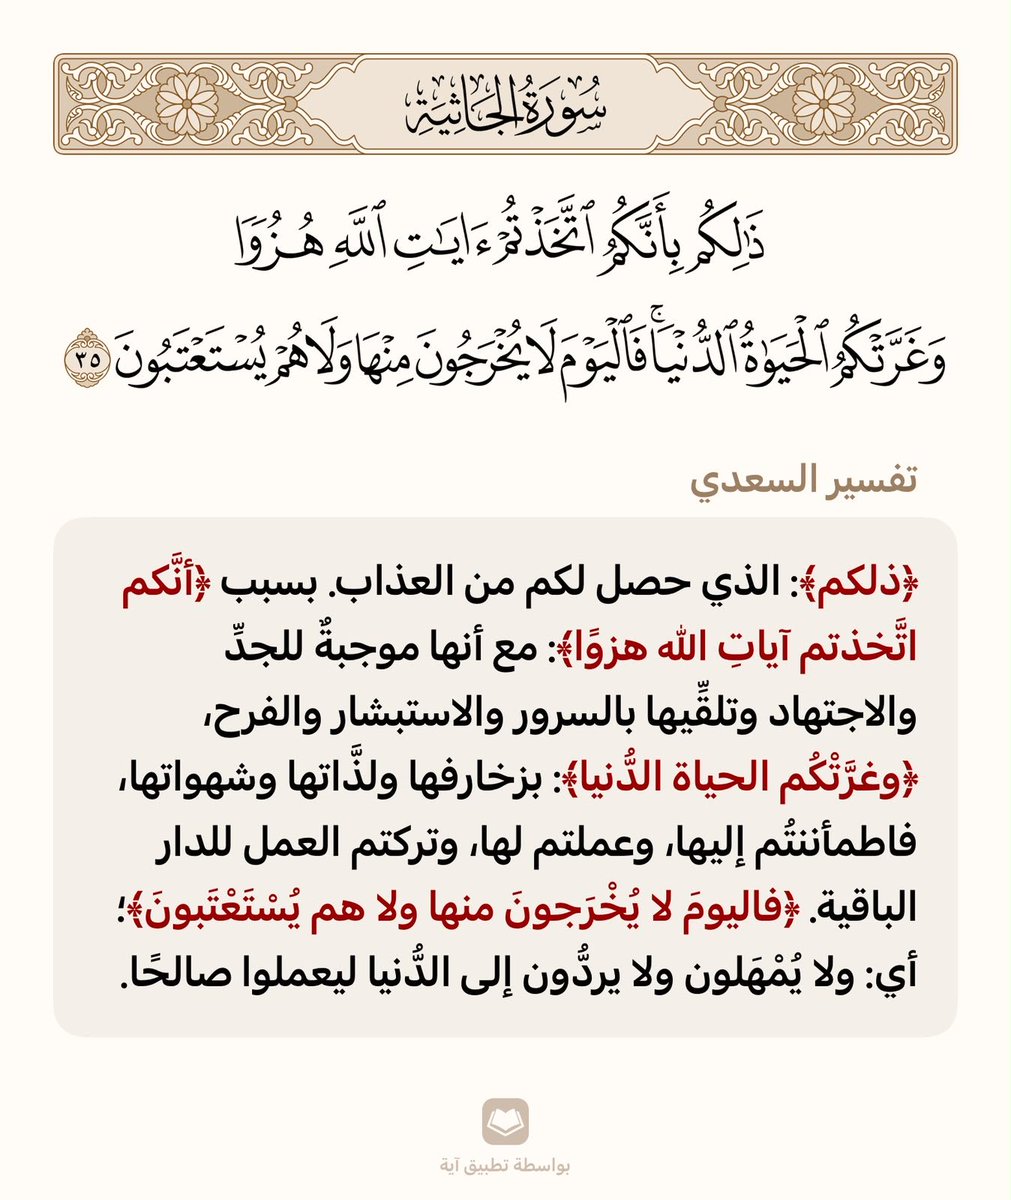 سُورَةُ الجَاثِيَةِ
ذَٰلِكُم بِأَنَّكُمُ ٱتَّخَذْتُمْ ءَايَـٰتِ ٱللَّهِ هُزُوًا
وَغَرَّتْكُمُ ٱلْحَيَوٰةُ ٱلدُّنْيَا ۚ فَٱلْيَوْمَ لَا يُخْرَجُونَ مِنْهَا وَلَا هُمْ يُسْتَعْتَبُونَ ٣٥
تفسير السعدي
﴿ذلكم﴾: الذي حصل لكم من العذاب. بسبب ﴿أنَّكم
اتَّخذتم آياتِ الله هزوًا﴾: مع أنها موجبةٌ للجدِّ
والاجتهاد وتلقِّيها بالسرور والاستبشار والفرح،
﴿وغرَّتْكُم الحياة الدُّنيا﴾: بزخارفها ولذَّاتها وشهواتها،
فاطمأننتُم إليها، وعملتم لها، وتركتم العمل للدار
الباقية. ﴿فاليومَ لا يُخْرَجونَ منها ولا هم يُسْتَعْتَبونَ﴾؛
أي: ولا يُمْهَلون ولا يردُّون إلى الدُّنيا ليعملوا صالحًا.
بواسطة تطبيق آية